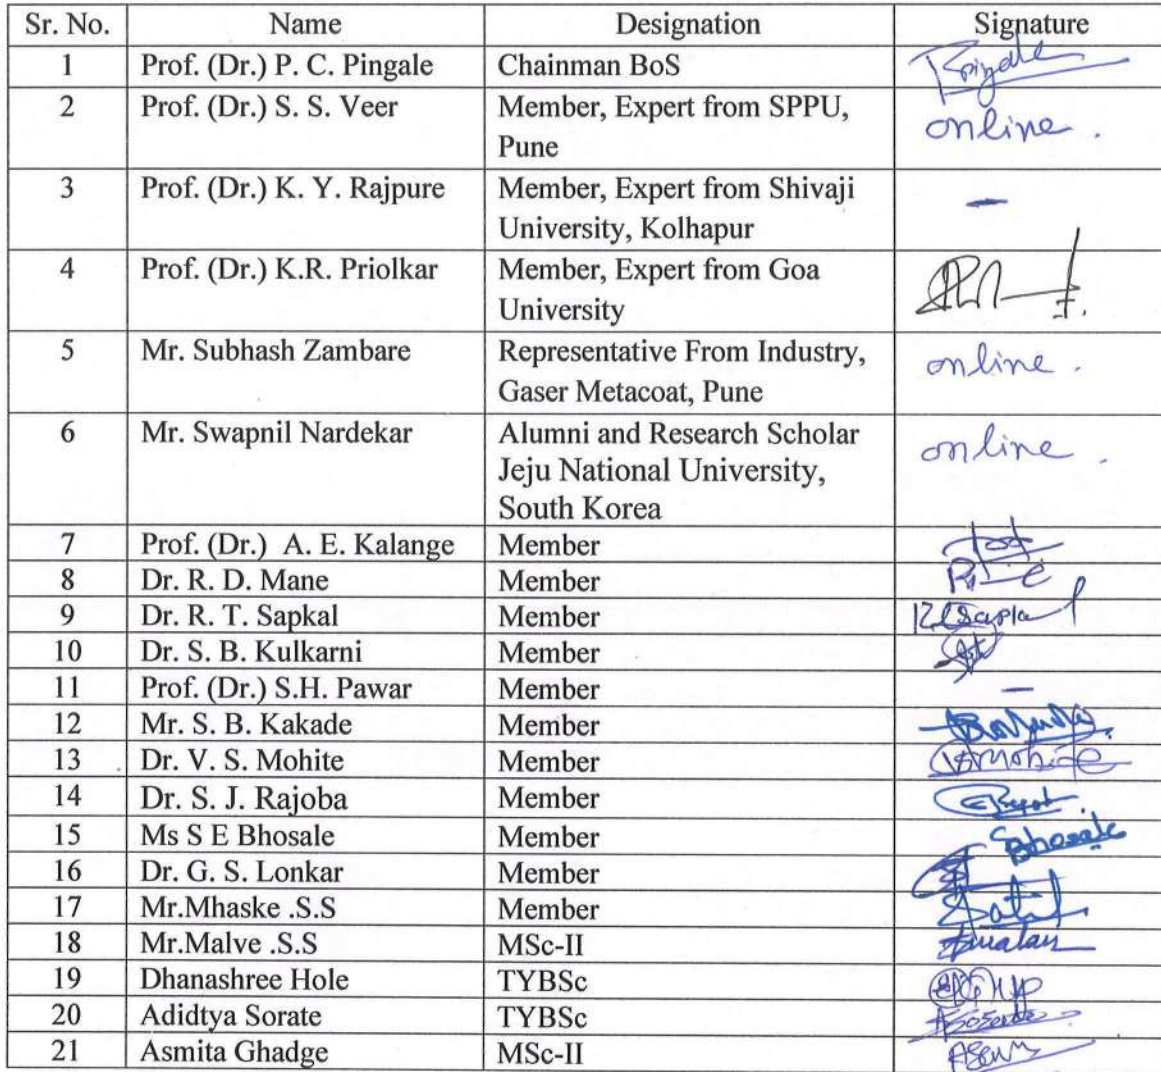 Sr. No. Name Designation Signature
1 Prof. (Dr.) P. C. Pingale Chainman BoS Pingale
2 Prof. (Dr.) S. S. Veer Member, Expert from SPPU, online .
Pune
3 Prof. (Dr.) K. Y. Rajpure Member, Expert from Shivaji -
University, Kolhapur
4 Prof. (Dr.) K.R. Priolkar Member, Expert from Goa
University
5 Mr. Subhash Zambare Representative From Industry, online .
Gaser Metacoat, Pune
6 Mr. Swapnil Nardekar Alumni and Research Scholar online .
Jeju National University,
South Korea
7 Prof. (Dr.) A. E. Kalange Member
8 Dr. R. D. Mane Member
9 Dr. R. T. Sapkal Member
10 Dr. S. B. Kulkarni Member
11 Prof. (Dr.) S.H. Pawar Member -
12 Mr. S. B. Kakade Member
13 Dr. V. S. Mohite Member
14 Dr. S. J. Rajoba Member
15 Ms S E Bhosale Member Bhosale
16 Dr. G. S. Lonkar Member
17 Mr.Mhaske .S.S Member
18 Mr.Malve .S.S MSc-II
19 Dhanashree Hole TYBSc
20 Adidtya Sorate TYBSc
21 Asmita Ghadge MSc-II